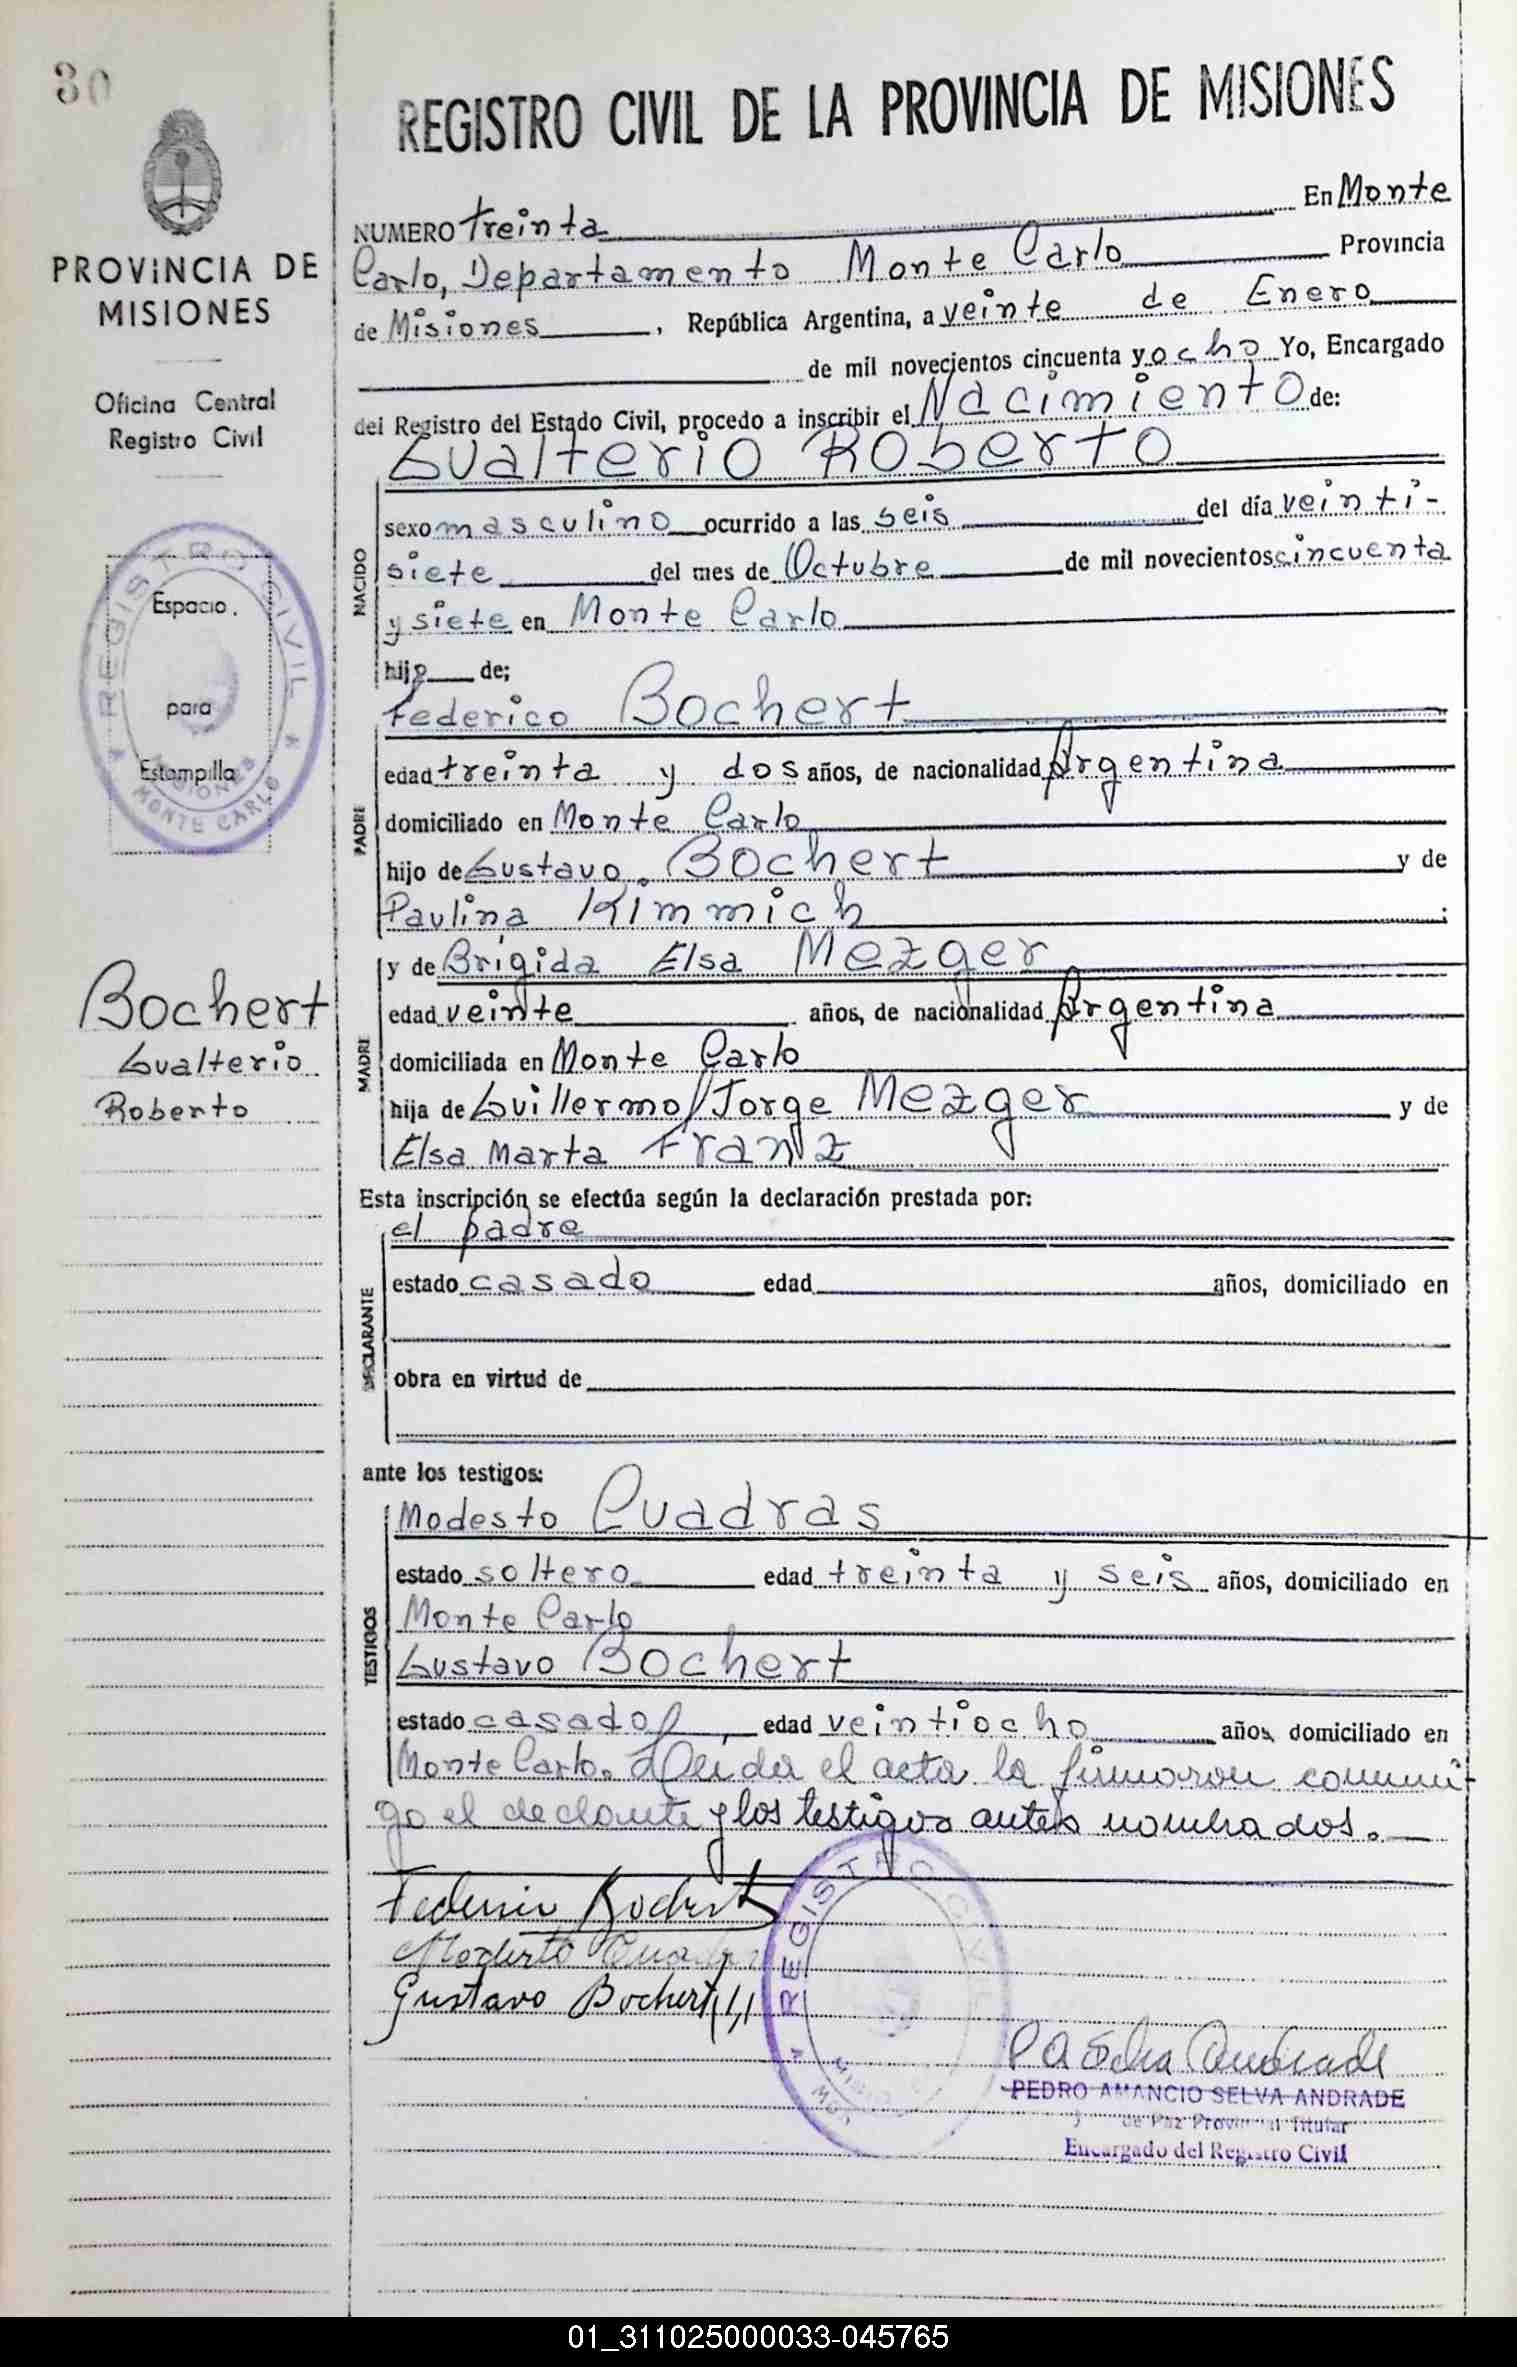 30
REGISTRO CIVIL DE LA PROVINCIA DE MISIONES
PROVINCIA DE
MISIONES
Oficina Central
Registro Civil
REGISTRO CIVIL
Espacio
para
Estampilla
MISIONES
MONTE CARLO
Bochert
Gualterio
Roberto
NUMERO treinta En Monte
Carlo, Departamento Monte Carlo Provincia
de Misiones, República Argentina, a veinte de Enero
de mil novecientos cincuenta y ocho Yo, Encargado
del Registro del Estado Civil, procedo a inscribir el Nacimiento de:
Gualterio Roberto
NACIDO
sexo masculino ocurrido a las seis del día veinti-
siete del mes de Octubre de mil novecientos cincuenta
y siete en Monte Carlo
hijo de;
Federico Bochert
PADRE
edad treinta y dos años, de nacionalidad Argentina
domiciliado en Monte Carlo
hijo de Gustavo Bochert y de
Paulina Kimmich;
MADRE
y de Brígida Elsa Mezger
edad veinte años, de nacionalidad Argentina
domiciliada en Monte Carlo
hija de Guillermo Jorge Mezger y de
Elsa Marta Franz
Esta inscripción se efectúa según la declaración prestada por:
el padre
DECLARANTE
estado casado edad años, domiciliado en
obra en virtud de
ante los testigos:
TESTIGOS
Modesto Cuadras
estado soltero edad treinta y seis años, domiciliado en
Monte Carlo
Gustavo Bochert
estado casado, edad veintiocho años, domiciliado en
Monte Carlo. Leída el acta la firmaron conmi-
go el declarante y los testigos antes nombrados.
Federico Bochert
Modesto Cuadras
Gustavo Bochert
REGISTRO CIVIL
P A Selva Andrade
PEDRO AMANCIO SELVA ANDRADE
de Paz Provincial Titular
Encargado del Registro Civil
01_311025000033-045765